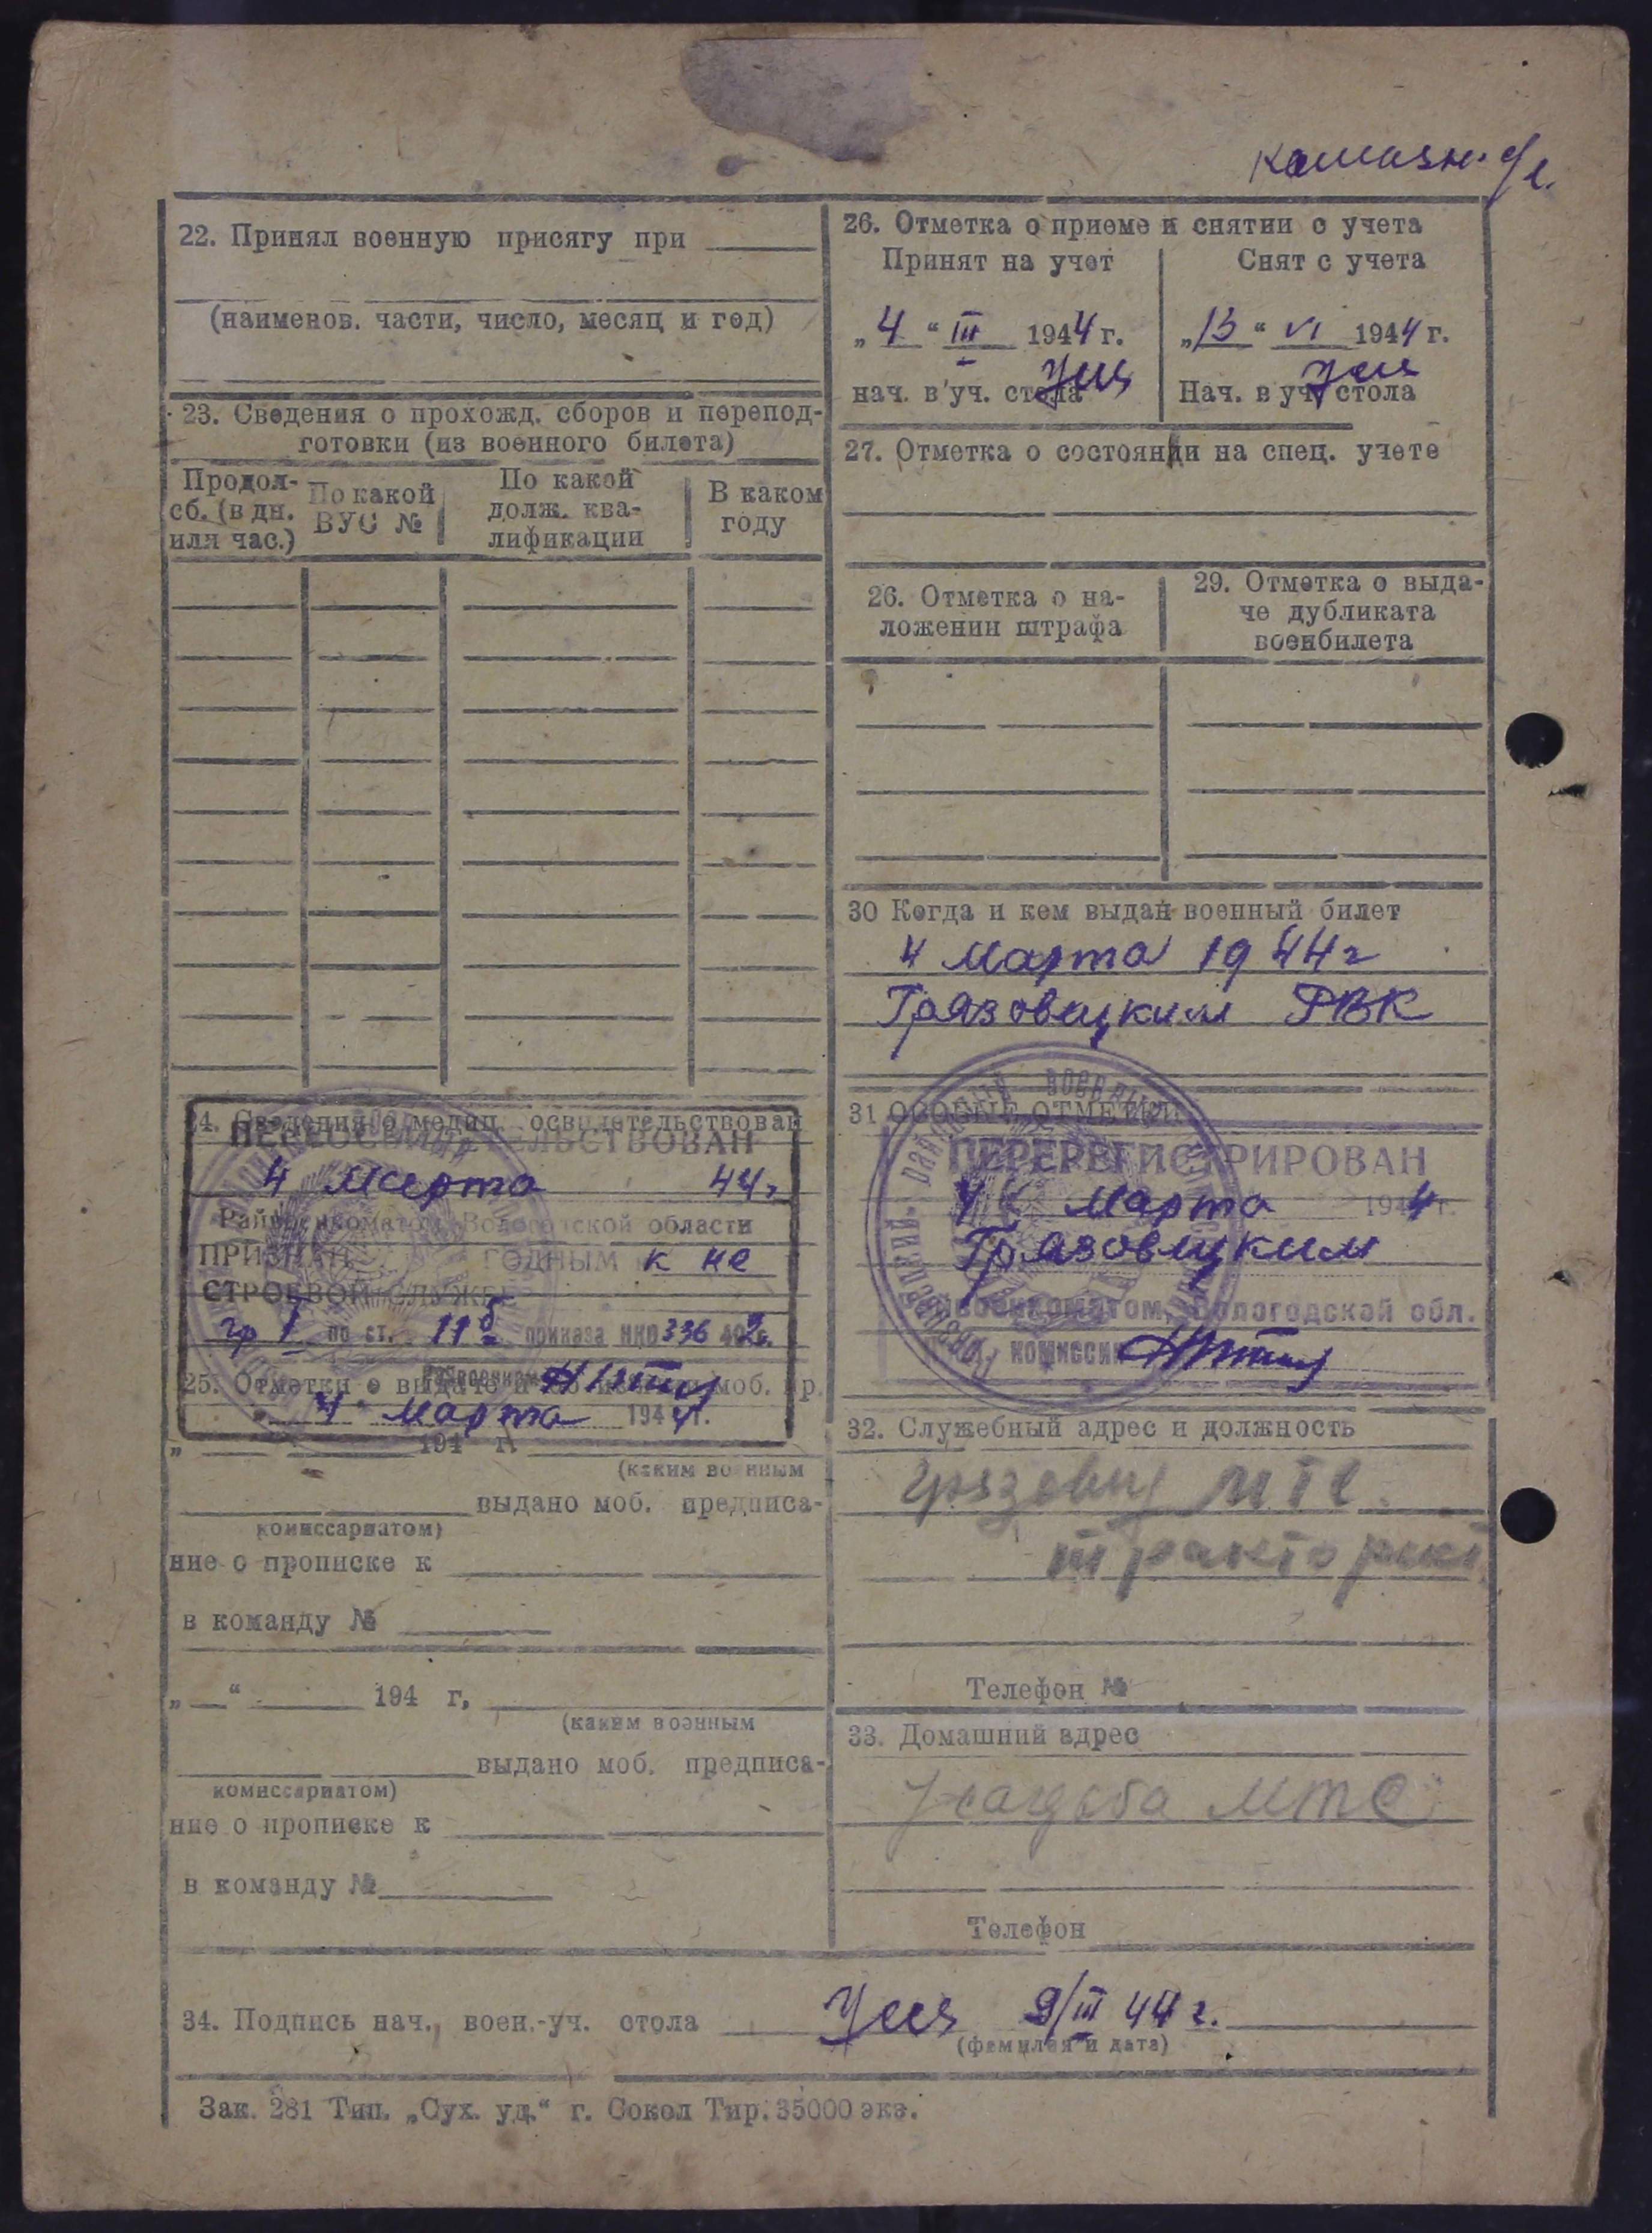 22. Принял военную присягу при
(наименов. части, число, месяц и год)
23. Сведения о прохожд. сборов и перепод-
готовки (из военного билета)
Продол-
сб. (в дн.
или час.)
По какой
ВУС №
По какой
долж. ква-
лификации
В каком
году
24. Сведения о медиц. освидетельствован
ПЕРЕОСВИДЕТЕЛЬСТВОВАН
4 Марта 44г
Райвоенкоматом Вологодской области
ПРИЗНАН ГОДНЫМ к не
СТРОЕВОЙ СЛУЖБЕ
гр I по ст. 11б приказа НКО 336 42г.
25. Отметки о выдаче и моб. пр.
4 Марта 1944г.
„ 194 г.
(каким военным
выдано моб. предписа-
комиссариатом)
ние о прописке к
в команду №
„ “ 194 г,
(каким военным
выдано моб. предписа-
комиссариатом)
ние о прописке к
в команду №
26. Отметка о приеме и снятии с учета
Принят на учет
„4“ III 1944 г.
нач. в уч. стола
Снят с учета
„13“ VI 1944 г.
Нач. в уч. стола
27. Отметка о состоянии на спец. учете
26. Отметка о на-
ложении штрафа
29. Отметка о выда-
че дубликата
военбилета
30 Когда и кем выдан военный билет
4 Марта 1944г
Грязовецким РВК
31 ОСОБЫЕ ОТМЕТКИ
ПЕРЕРЕГИСТРИРОВАН
Марта 1944 г.
Грязовецким
Райвоенкоматом, Вологодской обл.
комиссии
32. Служебный адрес и должность
Грязовец МТС.
тракторист
Телефон №
33. Домашний адрес
Усадьба МТС
Телефон
34. Подпись нач., воен.-уч. стола 9/III 44 г.
(фамилия и дата)
Зак. 281 Тип. „Сух. уд.“ г. Сокол Тир. 35000 экз.